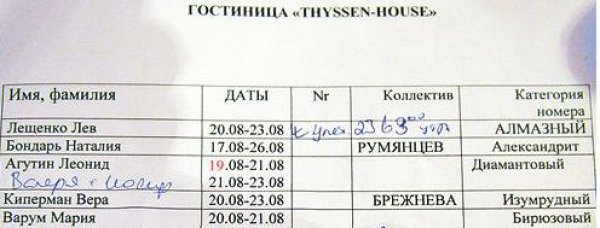 ГОСТИНИЦА «THYSSEN-HOUSE»
Имя, фамилия ДАТЫ Nr Коллектив Категория номера
Лещенко Лев 20.08-23.08 23 АЛМАЗНЫЙ
Бондарь Наталия 17.08-26.08 РУМЯНЦЕВ Александрит
Агутин Леонид 19.08-21.08 Диамантовый
Валерия + Иосиф 21.08-23.08
Киперман Вера 20.08-23.08 БРЕЖНЕВА Изумрудный
Варум Мария 20.08-21.08 Бирюзовый